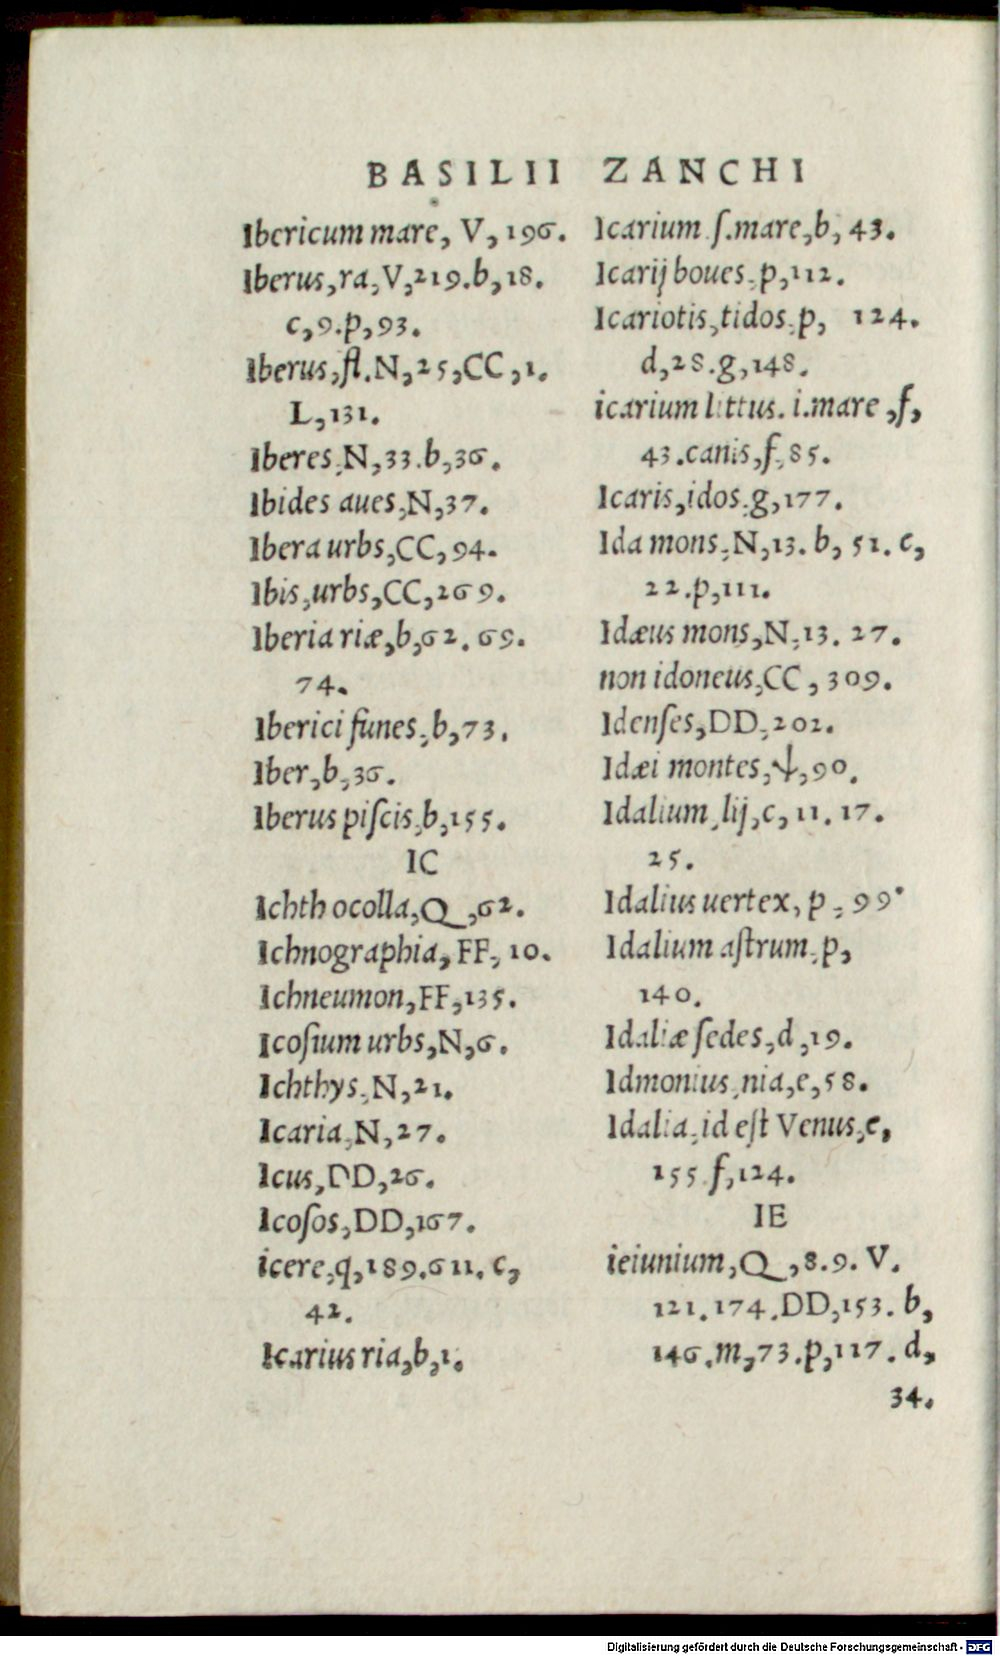 BASILII ZANCHI
Ibericum mare, V, 196.
Iberus, ra, V, 219. b, 18.
c, 9. p, 93.
Iberus, fl. N, 25, CC, 1.
L, 131.
Iberes, N, 33. b, 36.
Ibides aues, N, 37.
Ibera urbs, CC, 94.
Ibis, urbs, CC, 269.
Iberia riæ, b, 62. 69.
74.
Iberici funes, b, 73.
Iber, b, 36.
Iberus piſcis, b, 155.
IC
Ichth ocolla, Q, 62.
Ichnographia, FF, 10.
Ichneumon, FF, 135.
Icoſium urbs, N, 6.
Ichthys, N, 21.
Icaria, N, 27.
Icus, DD, 26.
Icoſos, DD, 167.
icere, q, 189. 611. c,
42.
Icarius ria, b, 1.
Icarium ſ. mare, b, 43.
Icarij boues, p, 112.
Icariotis, tidos, p, 124.
d, 28. g, 148.
icarium littus. i. mare, f,
43. canis, f, 85.
Icaris, idos, g, 177.
Ida mons, N, 13. b, 51. c,
22. p, 111.
Idæus mons, N, 13. 27.
non idoneus, CC, 309.
Idenſes, DD, 202.
Idæi montes, ψ, 90.
Idalium lij, c, 11. 17.
25.
Idalius uertex, p, 99.
Idalium aſtrum, p,
140.
Idaliæ ſedes, d, 19.
Idmonius, nia, e, 58.
Idalia, id eſt Venus, e,
155 f, 124.
IE
ieiunium, Q, 8. 9. V.
121. 174. DD, 153. b,
146. m, 73. p, 117. d,
34.
Digitalisierung gefördert durch die Deutsche Forschungsgemeinschaft - DFG